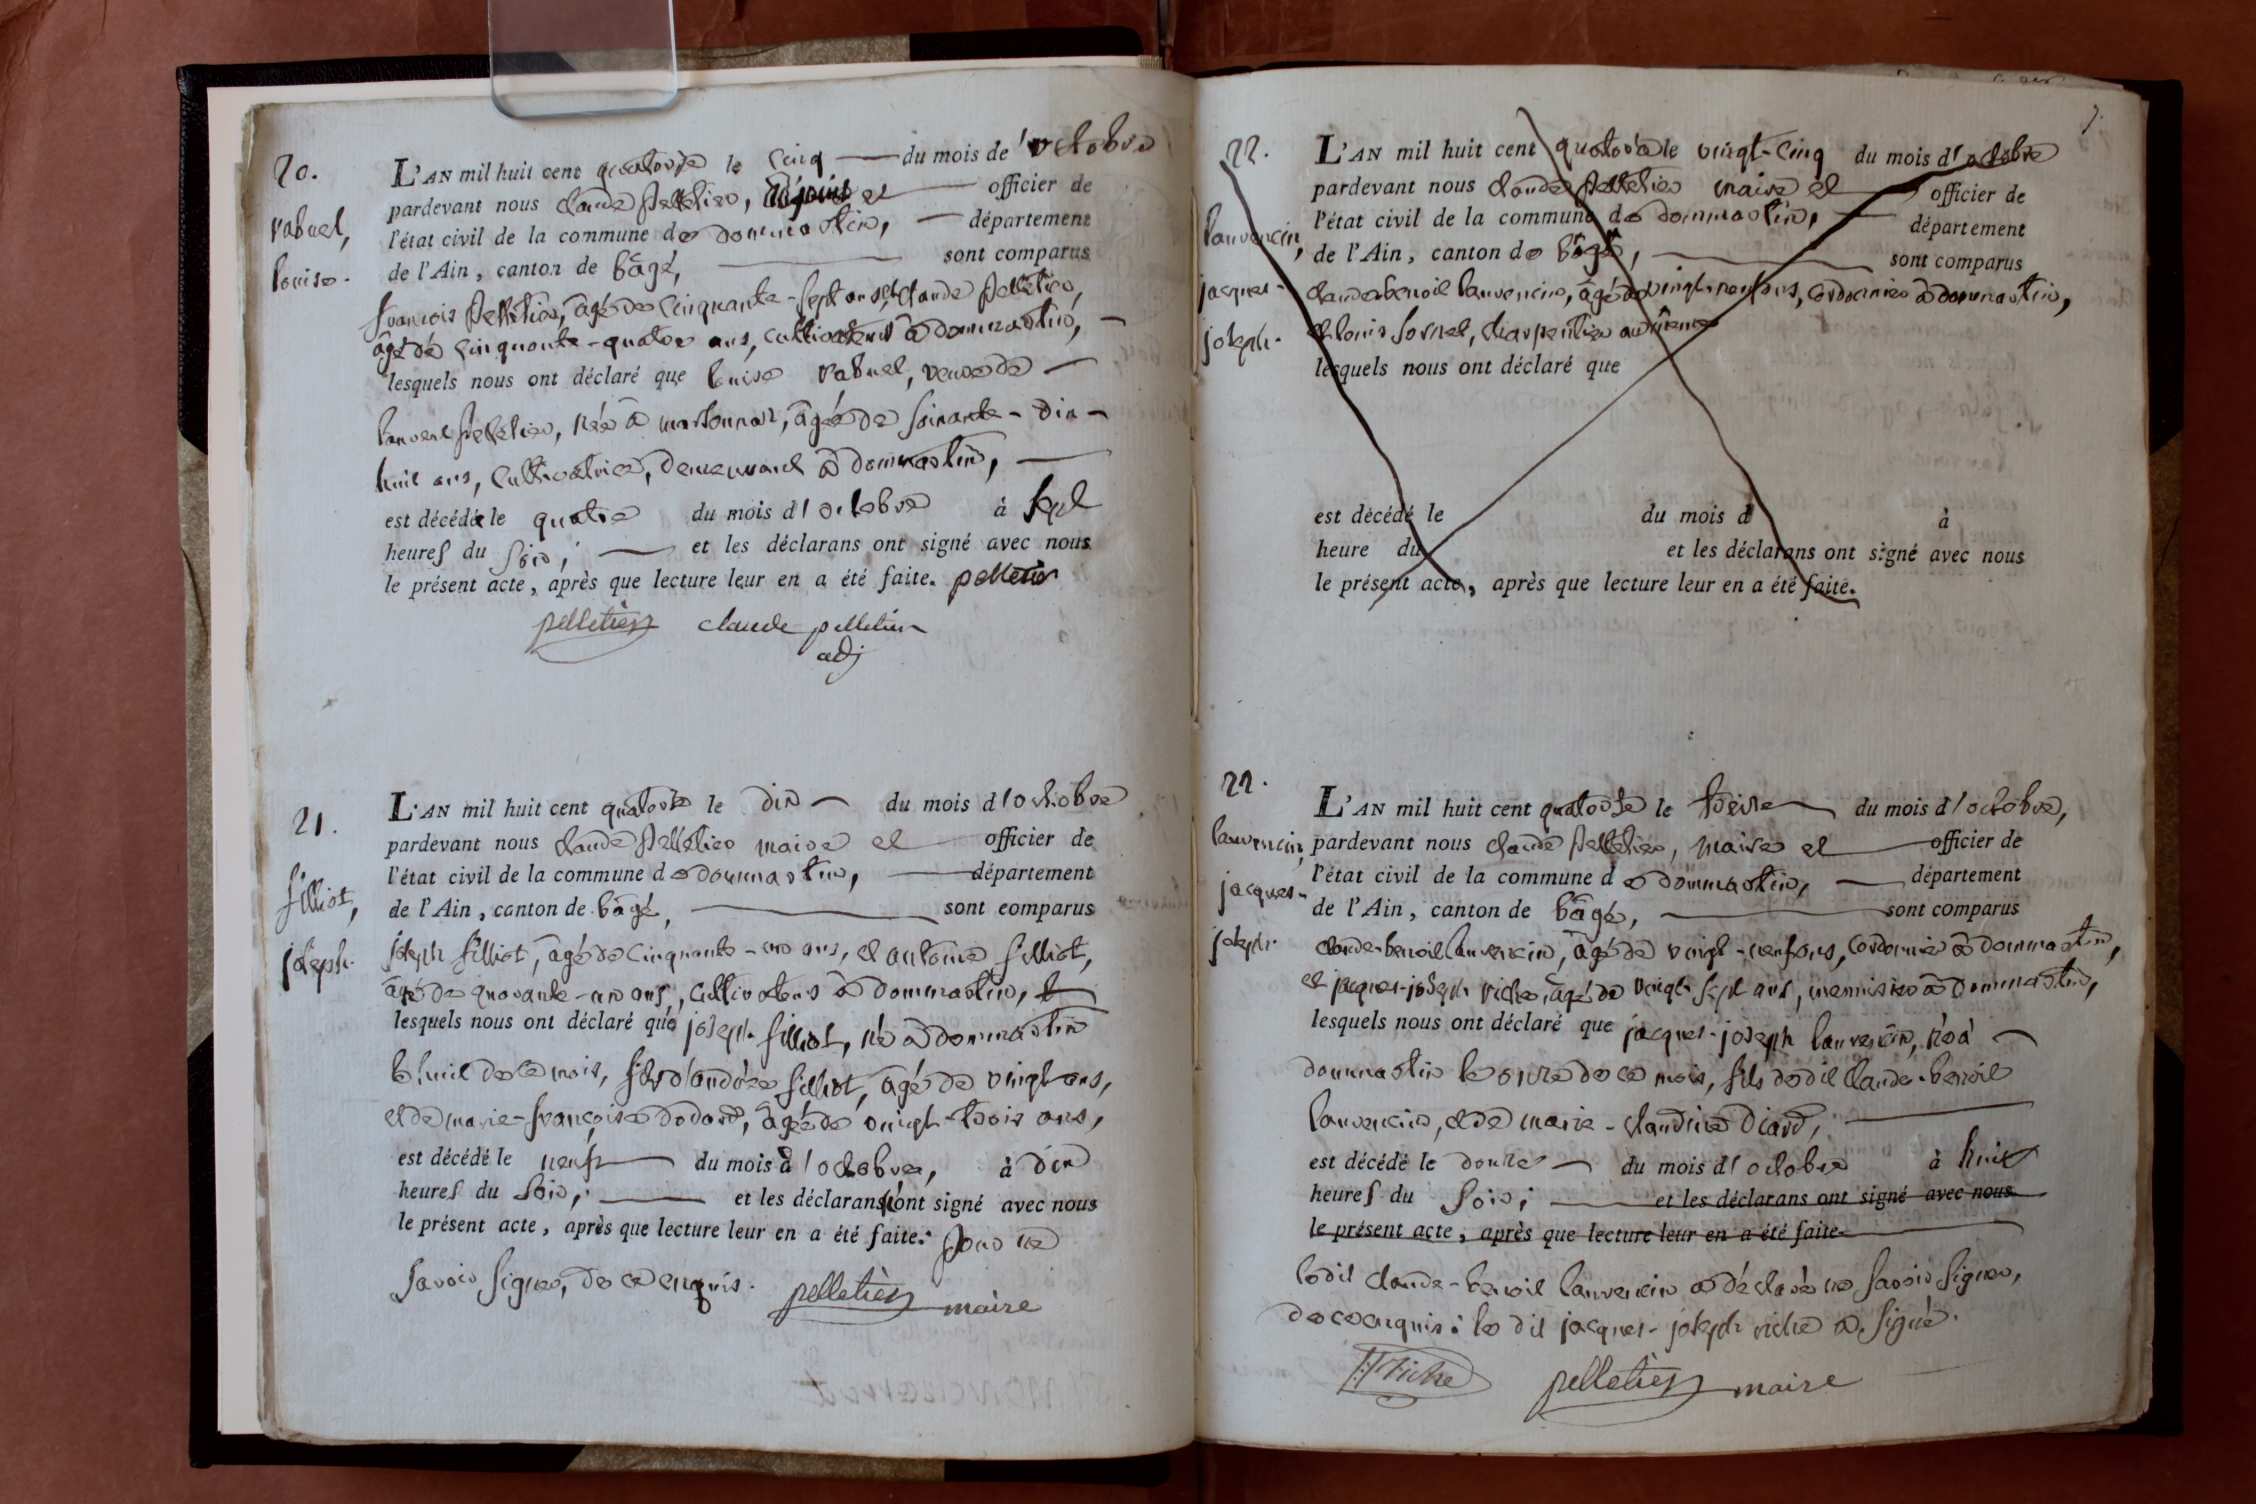 20.
rabuel,
louise.
L'AN mil huit cent quatorze le cinq du mois de l'octobre
pardevant nous claude pelletier, adjoint et officier de
l'état civil de la commune de dommastin, département
de l'Ain, canton de bâgé, sont comparus
françois pelletier, âgé de cinquante-sept ans, et claude pelletier,
âgé de cinquante-quatre ans, cultivateurs à dommastin,
lesquels nous ont déclaré que louise rabuel, veuve de
laurent pelletier, née à marsonnas, âgée de soixante-dix-
huit ans, cultivatrice, demeurant à dommastin,
est décédée le quatre du mois d'octobre à sept
heures du soir; et les déclarans ont signé avec nous
le présent acte, après que lecture leur en a été faite. pelletier
pelletier claude pelletier
adj
21.
filliot,
joseph.
L'AN mil huit cent quatorze le dix du mois d'octobre
pardevant nous claude pelletier maire et officier de
l'état civil de la commune de dommastin, département
de l'Ain, canton de bâgé, sont comparus
joseph filliot, âgé de cinquante-un ans, et antoine filliot,
âgé de quarante-un ans, cultivateurs à dommastin,
lesquels nous ont déclaré que joseph filliot, né à dommastin
le huit de ce mois, fils d'andré filliot, âgé de vingt ans,
et de marie-françoise dodard, âgée de vingt-trois ans,
est décédé le neuf du mois d'octobre, à dix
heures du soir; et les déclarans ont signé avec nous
le présent acte, après que lecture leur en a été faite. pour ne
savoir signer, de ce enquis. pelletier maire
7.
22.
lauvencin,
jacques-
joseph.
L'AN mil huit cent quatorze le vingt-cinq du mois d'octobre
pardevant nous claude pelletier maire et officier de
l'état civil de la commune de dommastin, département
de l'Ain, canton de bâgé, sont comparus
claude-benoit lauvencin, âgé de vingt-neuf ans, cordonnier à dommastin,
et louis fornet, charpentier au même
lesquels nous ont déclaré que
est décédé le du mois d à
heure du et les déclarans ont signé avec nous
le présent acte, après que lecture leur en a été faite.
22.
lauvencin,
jacques-
joseph.
L'AN mil huit cent quatorze le treize du mois d'octobre,
pardevant nous claude pelletier, maire et officier de
l'état civil de la commune de dommastin, département
de l'Ain, canton de bâgé, sont comparus
claude-benoit lauvencin, âgé de vingt-neuf ans, cordonnier à dommastin,
et jacques-joseph riche, âgé de vingt-sept ans, menuisier à dommastin,
lesquels nous ont déclaré que jacques-joseph lauvencin, né à
dommastin le onze de ce mois, fils dudit claude-benoit
lauvencin, et de marie-claudine diard,
est décédé le douze du mois d'octobre à huit
heures du soir; et les déclarans ont signé avec nous
le présent acte, après que lecture leur en a été faite.
ledit claude-benoit lauvencin a déclaré ne savoir signer,
de ce enquis: le dit jacques-joseph riche a signé.
JJ Riche pelletier maire